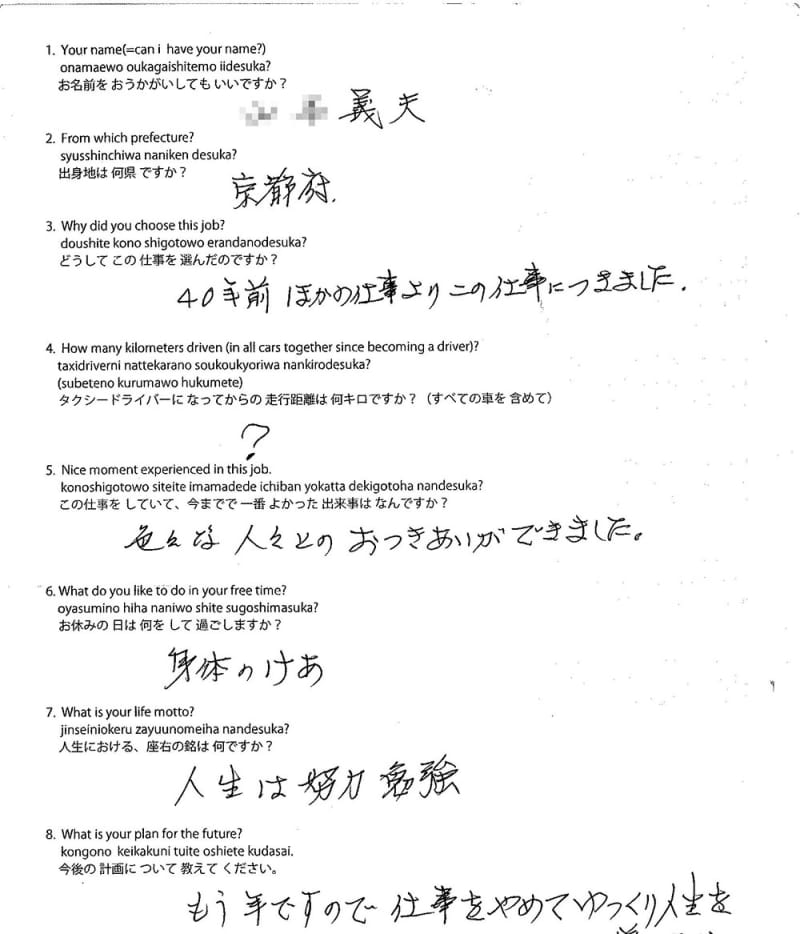 1. Your name(=can i have your name?)
onamaewo oukagaishitemo iidesuka?
お名前を おうかがいしても いいですか？
義夫
2. From which prefecture?
syusshinchiwa naniken desuka?
出身地は 何県 ですか？
京都府.
3. Why did you choose this job?
doushite kono shigotowo erandanodesuka?
どうして この 仕事を 選んだのですか？
40年前 ほかの仕事より この仕事につきました.
4. How many kilometers driven (in all cars together since becoming a driver)?
taxidriverni nattekarano soukoukyoriwa nankirodesuka?
(subeteno kurumawo hukumete)
タクシードライバーに なってからの 走行距離は 何キロですか？（すべての車を 含めて）
?
5. Nice moment experienced in this job.
konoshigotowo siteite imamadede ichiban yokatta dekigotoha nandesuka?
この仕事を していて、今までで 一番 よかった 出来事は なんですか？
色々な 人々との おつきあいが できました。
6. What do you like to do in your free time?
oyasumino hiha naniwo shite sugoshimasuka?
お休みの 日は 何を して 過ごしますか？
身体のけあ
7. What is your life motto?
jinseiniokeru zayuunomeiha nandesuka?
人生における、座右の銘は 何ですか？
人生は 努力 勉強
8. What is your plan for the future?
kongono keikakuni tuite oshiete kudasai.
今後の 計画に ついて 教えて ください。
もう年ですので 仕事をやめてゆっくり人生を